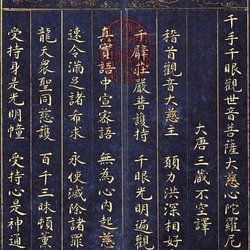 千手千眼觀世音菩薩大慈心陀羅尼
大唐三藏不空譯
稽首觀音大慈主 願力洪深相好
千臂莊嚴普護持 千眼光明遍觀
真實語中宣密語 無為心內起慈
速令滿足諸希求 永使滅除諸罪
龍天眾聖同慈護 百千三昧頓熏
受持身是光明幢 受持心是神通